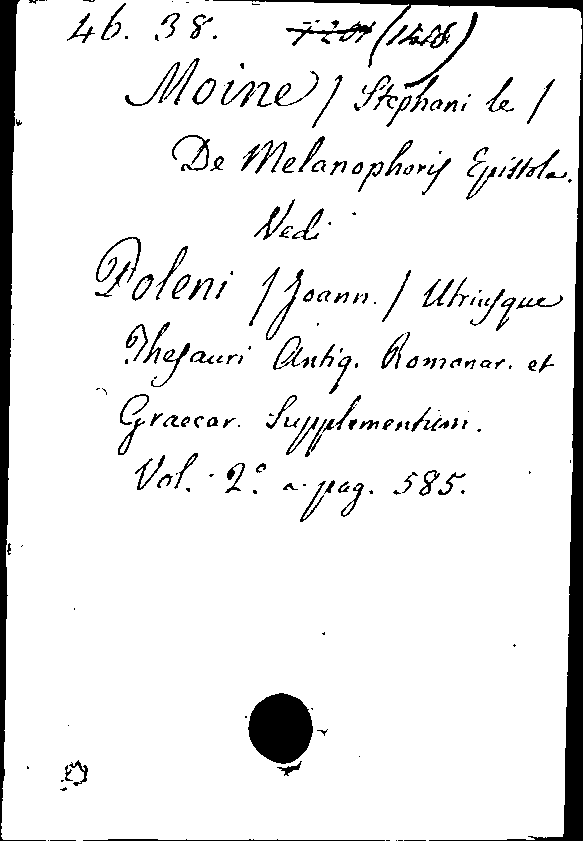 46. 38.
Moine / Stephani le /
De Melanophoris Epistola.
Vedi
Poleni / Joann. / Utriusque
Thesauri Antiq. Romanar. et
Graecar. Supplementum.
Vol. 2.º a pag. 585.